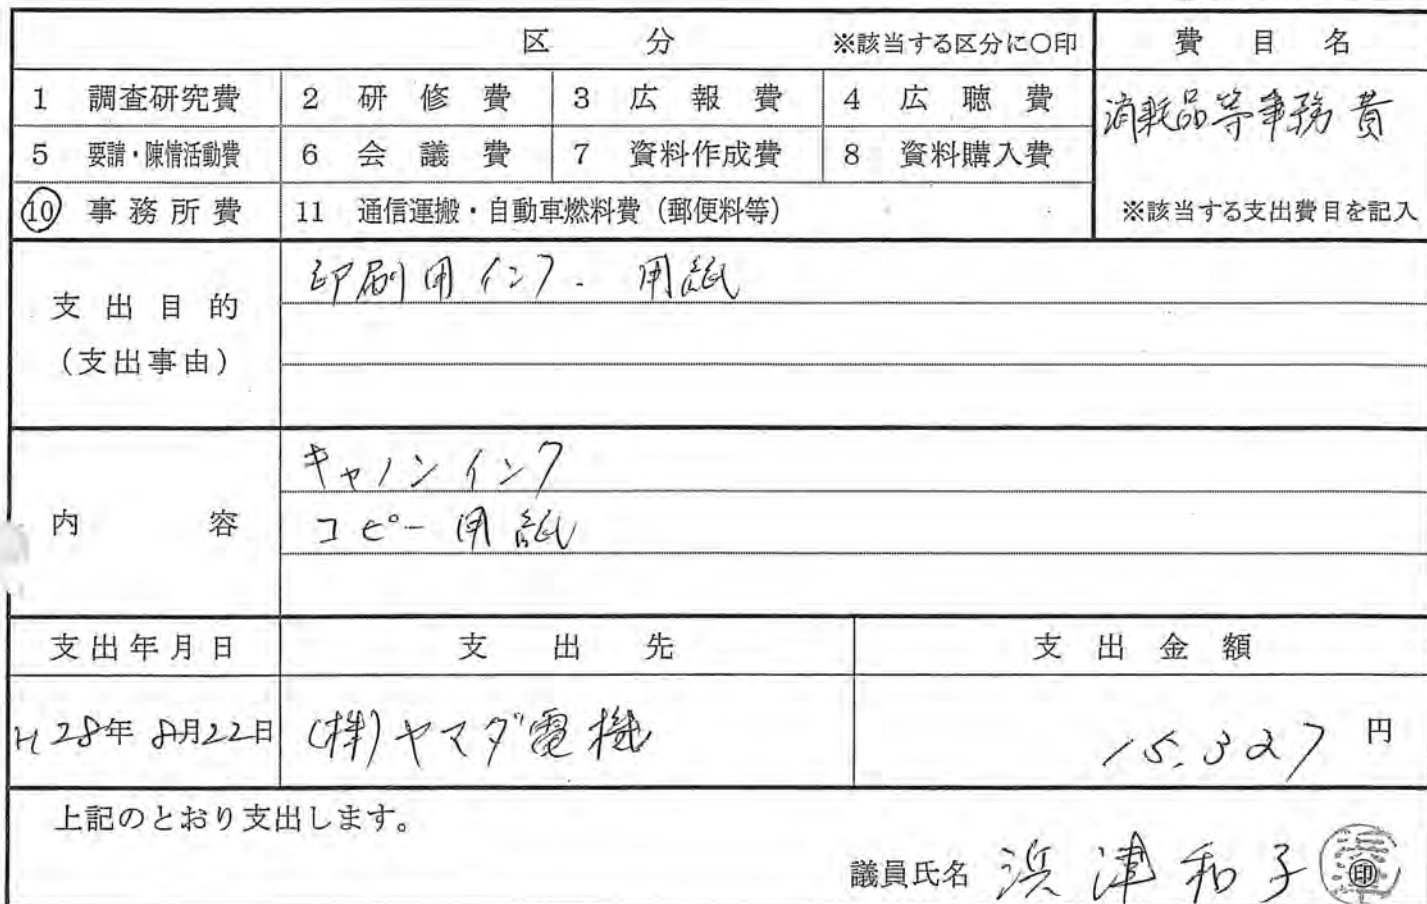 区分 ※該当する区分に〇印 費目名
1 調査研究費 2 研修費 3 広報費 4 広聴費 消耗品等事務費
5 要請・陳情活動費 6 会議費 7 資料作成費 8 資料購入費
⑩ 事務所費 11 通信運搬・自動車燃料費(郵便料等) ※該当する支出費目を記入
支出目的
(支出事由)
印刷用インク. 用紙
内容
キャノンインク
コピー用紙
支出年月日 支出先 支出金額
H28年 8月22日 (株)ヤマダ電機 15,327 円
上記のとおり支出します。
議員氏名 浜津和子 印